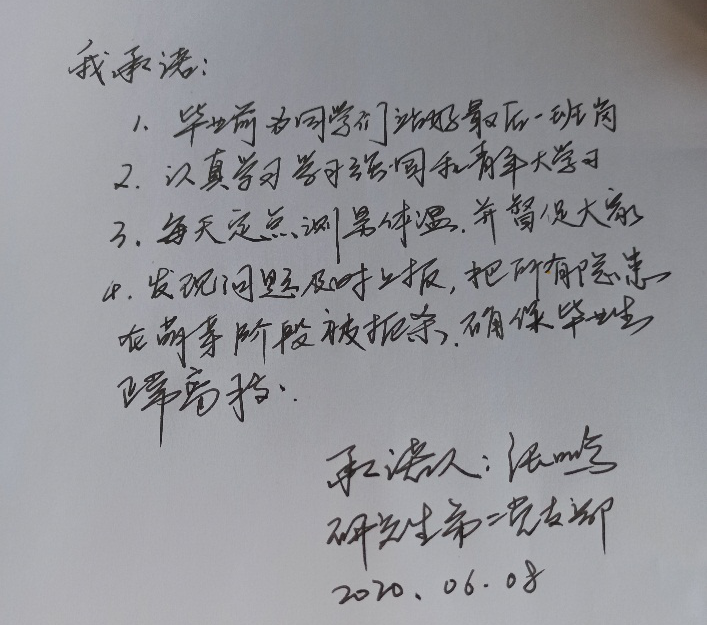 我承诺:
1. 毕业前为同学们站好最后一班岗
2. 认真学习学习强国和青年大学习
3. 每天定点测量体温.并督促大家
4. 发现问题及时上报,把所有隐患
在萌芽阶段被扼杀.确保毕业生
正常离校.
承诺人:张鸣
研究生第二党支部
2020.06.08